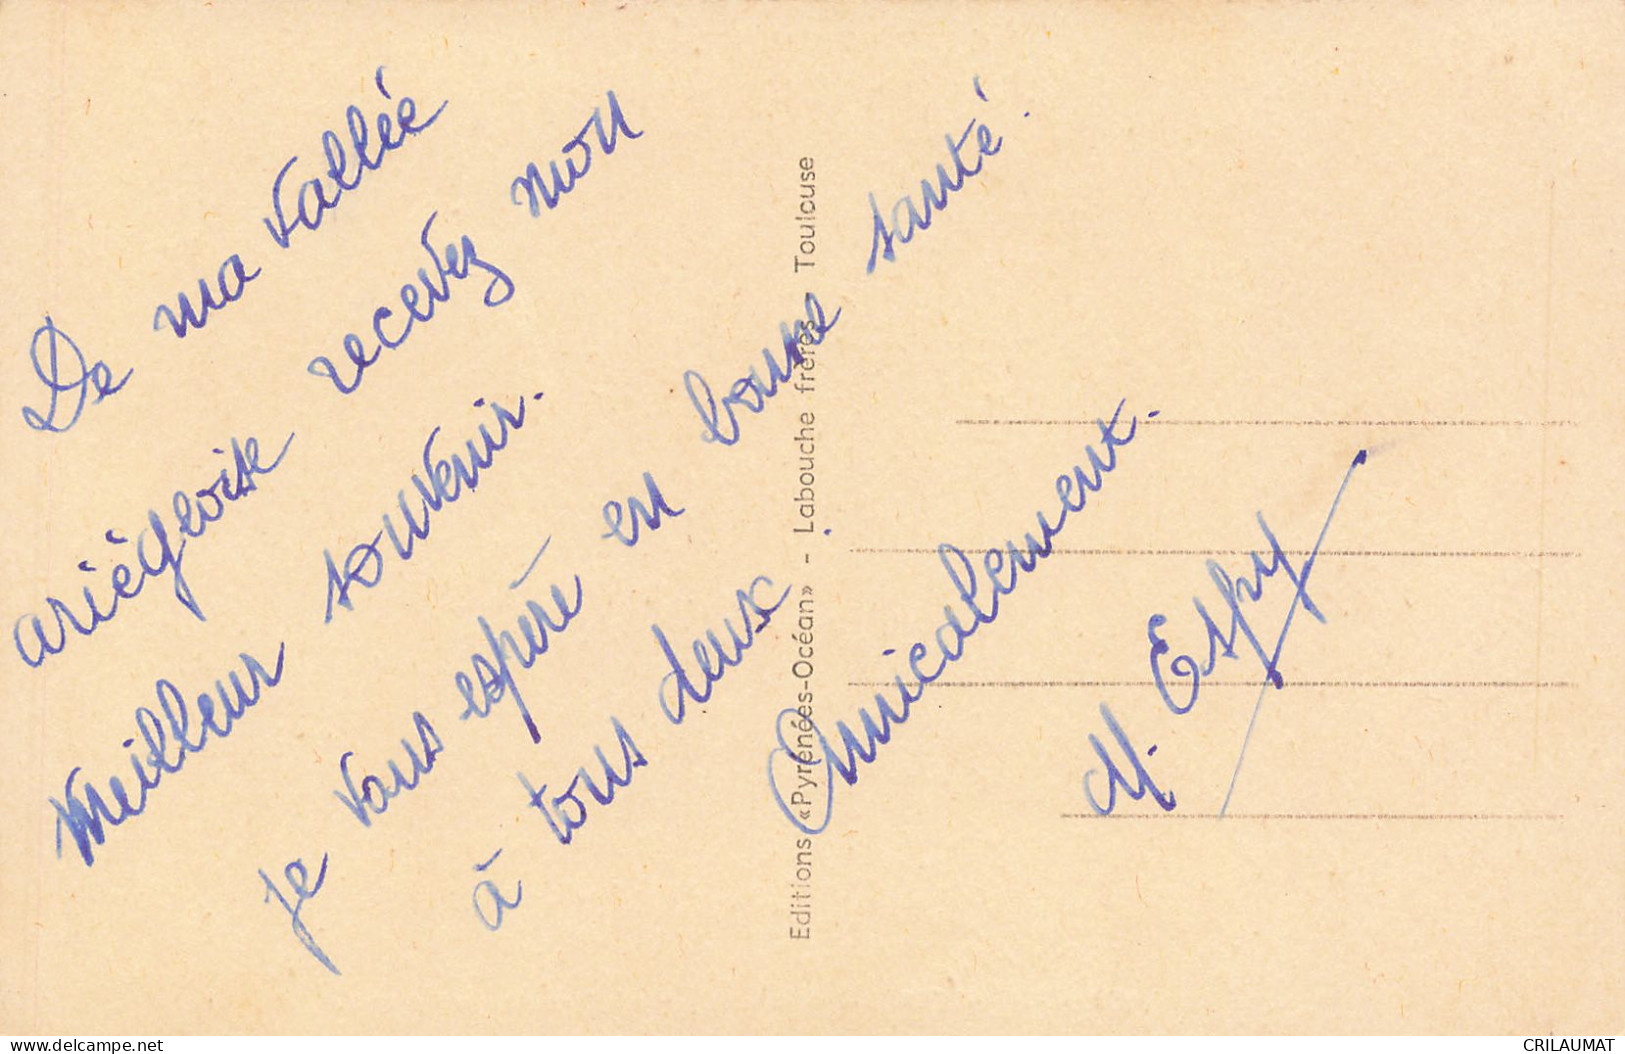 De ma vallée
ariégeoise recevez mon
meilleur souvenir.
je vous espère en bonne santé.
à tous deux
Amicalement.
M. Espy
Editions «Pyrénées-Océan» - Labouche frères - Toulouse
delcampe.net
CRILAUMAT